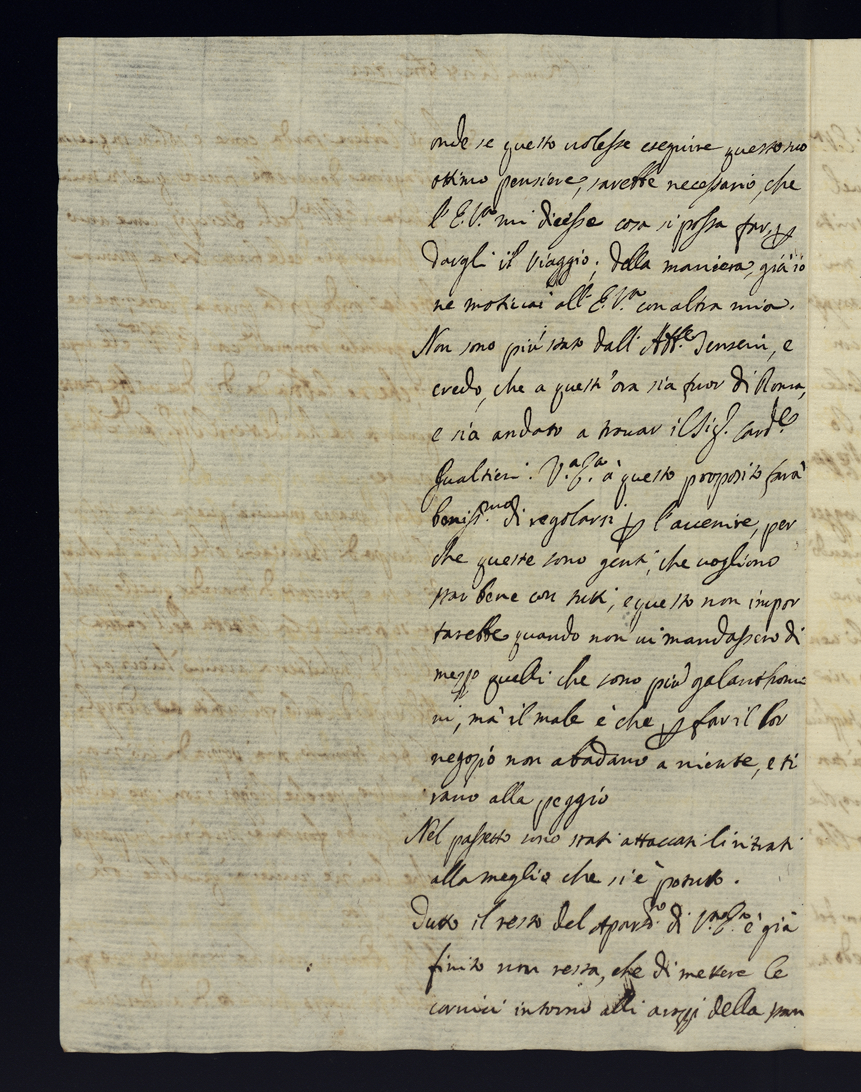 onde se questo volesse eseguire questo suo
ottimo pensiere, sarebbe necessario, che
l'E.V.ra mi dicesse cosa si possa far, p
dargli il viaggio; della maniera, già io
ne motivai all'E.V.ra con altra mia.
Non sono più stato dall' Abb.e Jenseni, e
credo, che a quest'ora sia fuor di Roma,
e sia andato a trovar il Sig.r Card.le
Gualtieri. V.a E.a à questo proposito farà
beniss.mo di regolarsi p l'avvenire, per
che queste sono genti, che vogliono
star bene con tutti, e questo non impor
tarebbe quando non vi mandassero di
mezzo quelli che sono più galanthomi
ni, mà il male è che p far il lor
negozio non abadano a niente, e ti
rano alla peggio
Nel passetto sono stati attaccati li ritrati
alla meglio che si è potuto.
Tutto il resto del apart.to di V.ra E.za è già
finito non resta, che di mettere le
cornici intorno alli arazzi della stan